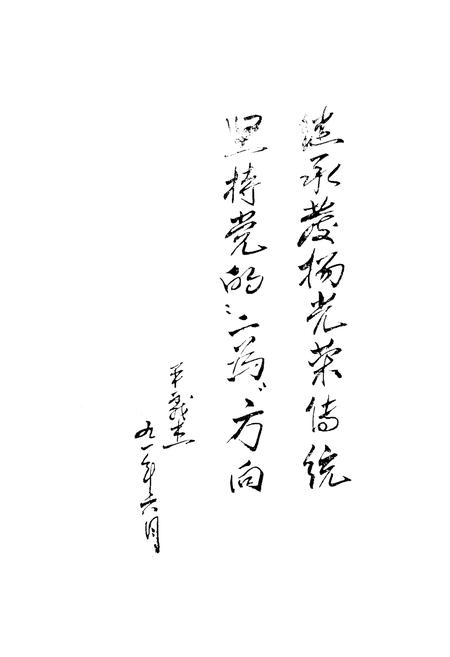 继承發扬光荣传统
坚持党的“二为”方向
九一年六月